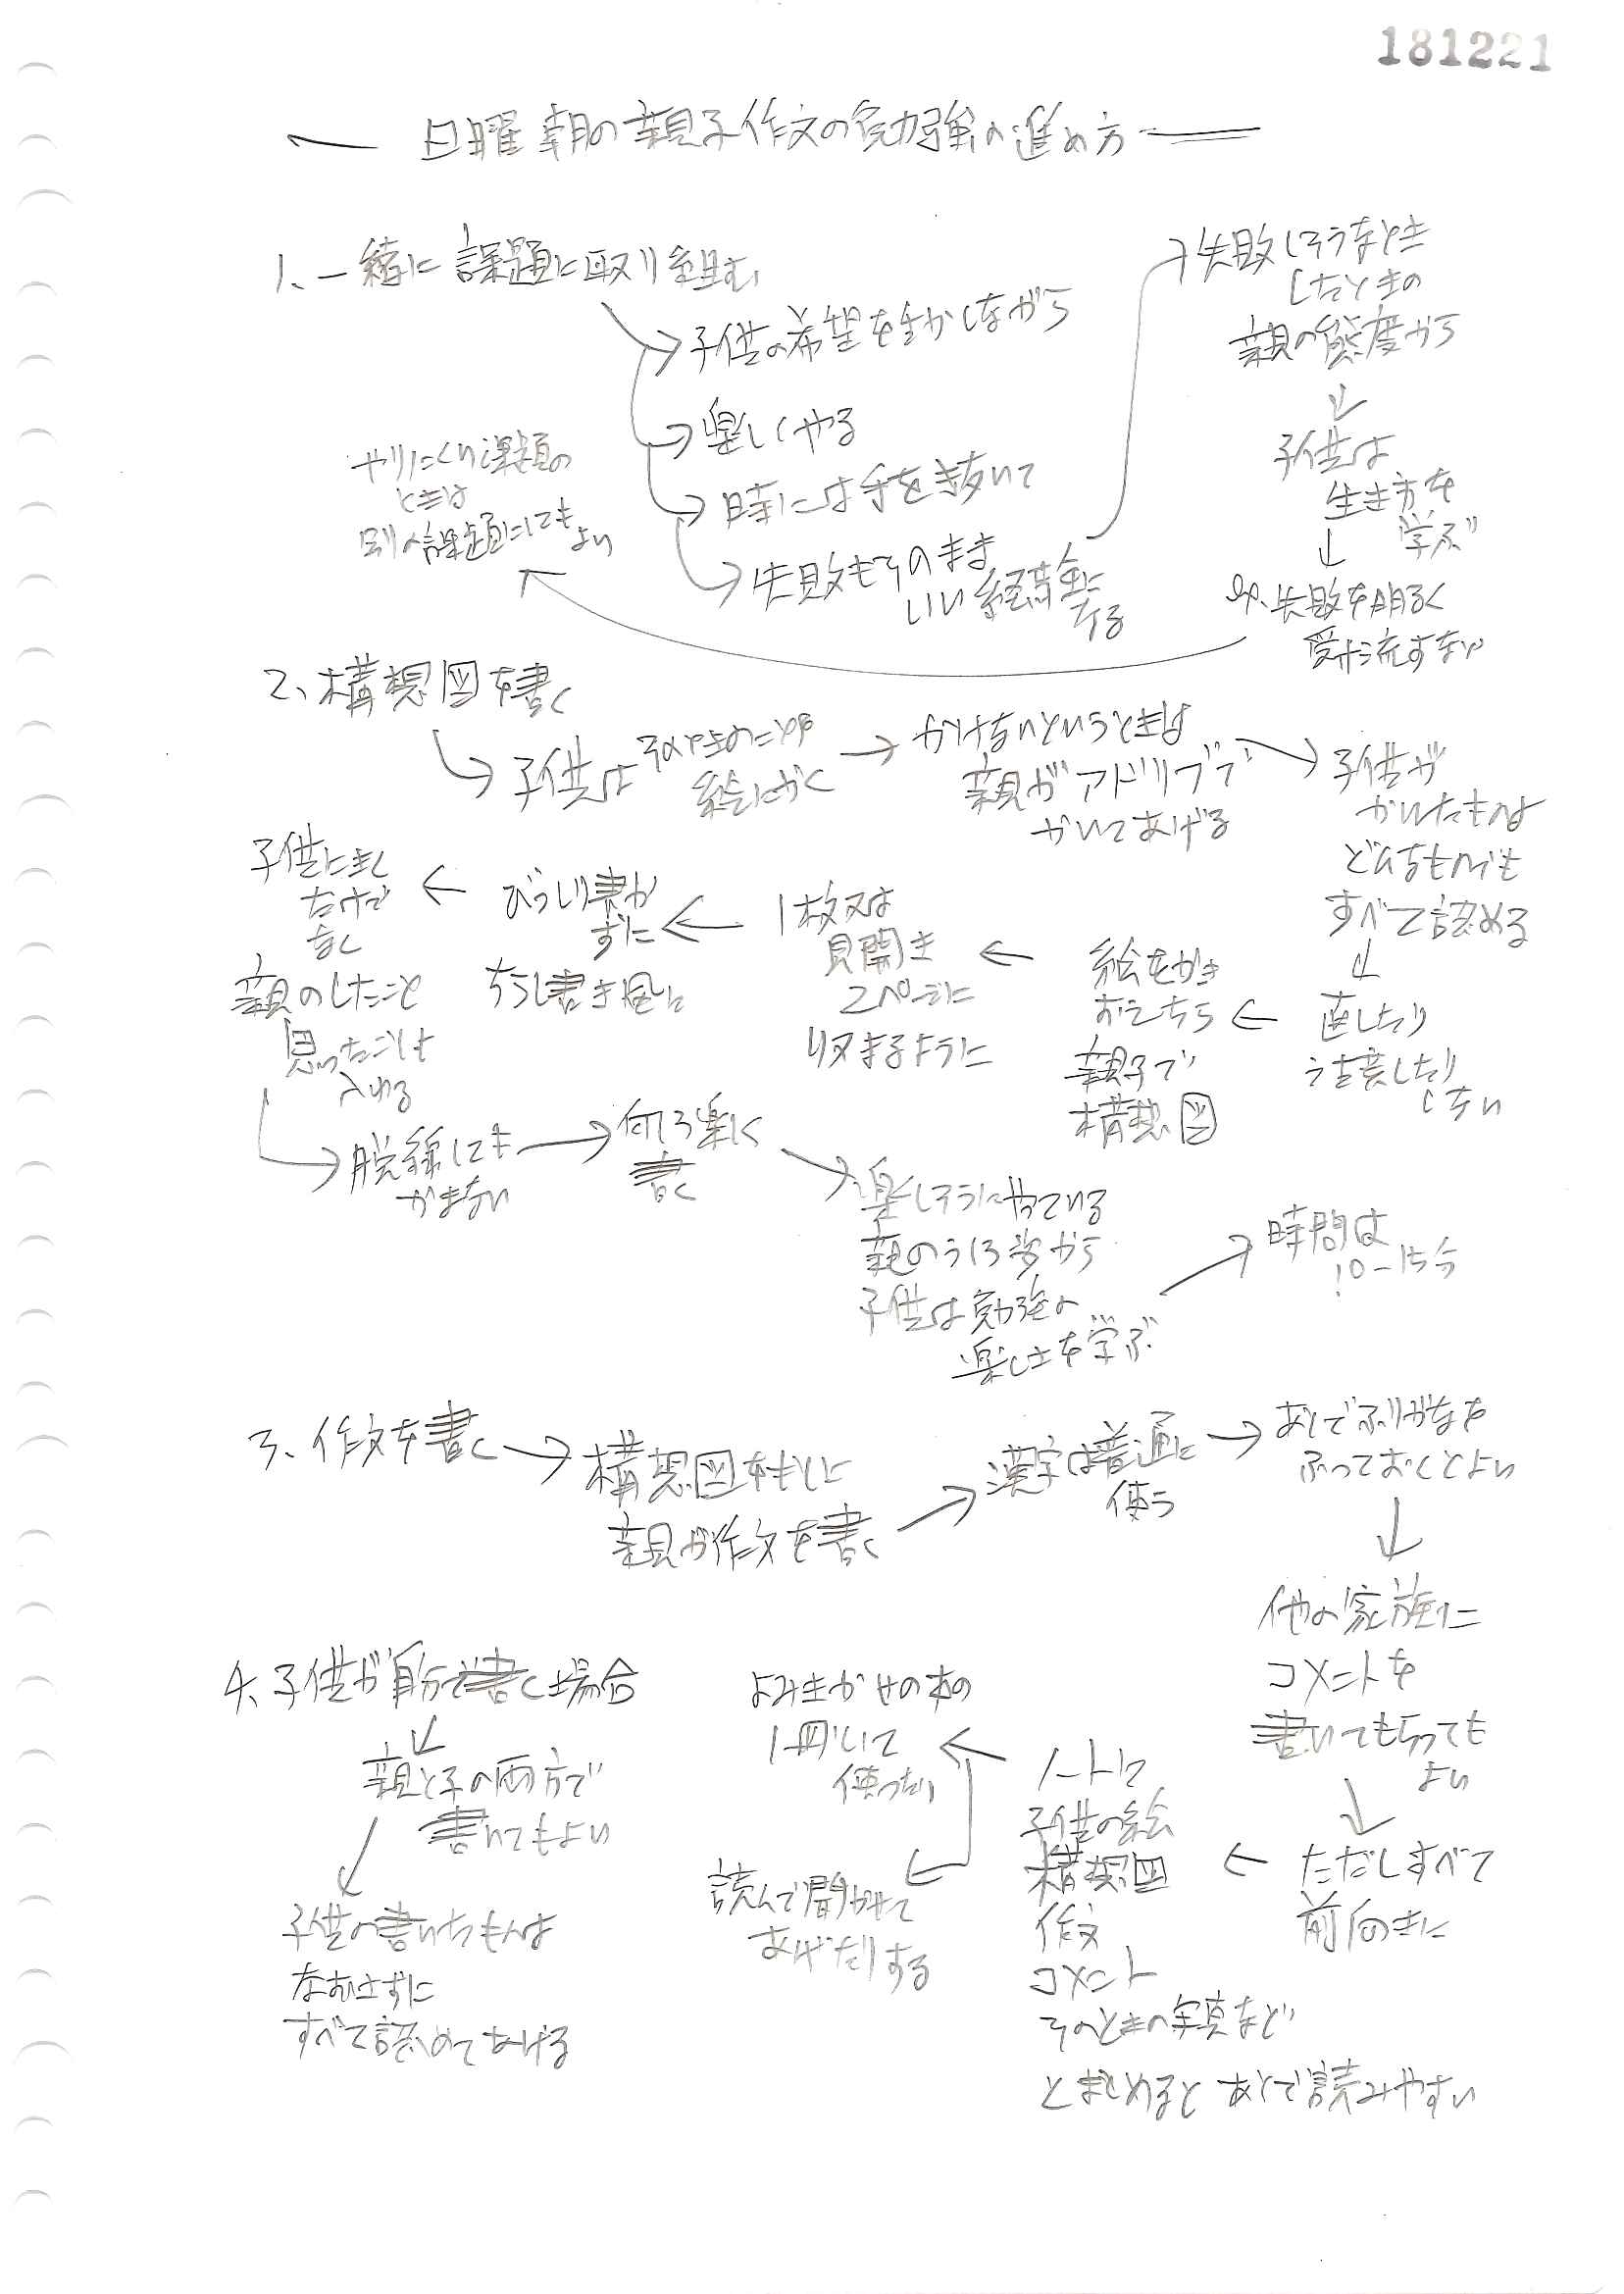 181221
日曜朝の親子作文の勉強の進め方
1、一緒に課題に取り組む
子供の希望を生かしながら
楽しくやる
時には手を抜いて
失敗もそのまま
いい経験に
なる
失敗しそうなとき
したときの
親の態度から
子供は
生き方を
学ぶ
失敗を明るく
受け流すなど
やりにくい課題の
ときは
別の課題にしても
よい
2、構想図を書く
子供は
そのときのことや
絵にかく
かけないというときは
親がアドリブで
かいてあげる
子供が
かいたものは
どんなものでも
すべて認める
直したり
注意したり
しない
絵をかき
おえたら
親子で
構想図
1枚又は
見開き
2ページに
収まるように
びっしり書か
ずに
ちらし書き風に
子供にきく
だけで
なく
親のしたこと
思ったことも
入れる
脱線しても
かまない
何しろ楽しく
書く
楽しそうにやっている
親のうしろ姿から
子供は勉強の
楽しさを学ぶ
時間は
10-15分
3、作文を書く
構想図をもとに
親が作文を書く
漢字は普通に
使う
あとでふりがなを
ふっておくとよい
他の家族に
コメントを
書いてもらっても
よい
ただしすべて
前向きに
ノートに
子供の絵
構想図
作文
コメント
そのときの写真など
とまとめると あとで読みやすい
よみきかせの本の
1冊として
使ったり
読んで聞かせて
あげたりする
4、子供が自分で書く場合
親と子の両方で
書いてもよい
子供の書いたものは
なおさずに
すべて認めてあげる